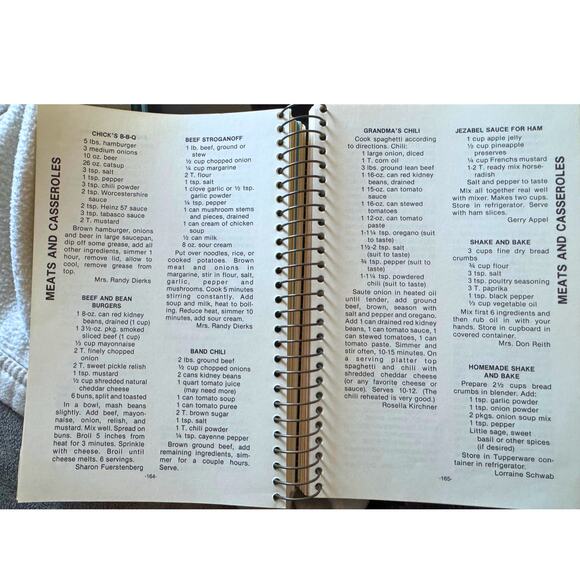 MEATS AND CASSEROLES
CHICK'S B-B-Q
5 lbs. hamburger
3 medium onions
10 oz. beer
26 oz. catsup
3 tsp. salt
1 tsp. pepper
3 tsp. chili powder
2 tsp. Worcestershire
sauce
2 tsp. Heinz 57 sauce
3 tsp. tabasco sauce
2 T. mustard
Brown hamburger, onions
and beer in large saucepan,
dip off some grease, add all
other ingredients, simmer 1
hour, remove lid, allow to
cool, remove grease from
top.
Mrs. Randy Dierks
BEEF AND BEAN
BURGERS
1 8-oz. can red kidney
beans, drained (1 cup)
1 3½-oz. pkg. smoked
sliced beef (1 cup)
⅓ cup mayonnaise
2 T. finely chopped
onion
2 T. sweet pickle relish
1 tsp. mustard
½ cup shredded natural
cheddar cheese
6 buns, split and toasted
In a bowl, mash beans
slightly. Add beef, mayon-
naise, onion, relish, and
mustard. Mix well. Spread on
buns. Broil 5 inches from
heat for 3 minutes. Sprinkle
with cheese. Broil until
cheese melts. 6 servings.
Sharon Fuerstenberg
BEEF STROGANOFF
1 lb. beef, ground or
stew
½ cup chopped onion
¼ cup margarine
2 T. flour
1 tsp. salt
1 clove garlic or ½ tsp.
garlic powder
¼ tsp. pepper
1 can mushroom stems
and pieces, drained
1 can cream of chicken
soup
½ can milk
8 oz. sour cream
Put over noodles, rice, or
cooked potatoes. Brown
meat and onions in
margarine, stir in flour, salt,
garlic, pepper and
mushrooms. Cook 5 minutes
stirring constantly. Add
soup and milk, heat to boil-
ing. Reduce heat, simmer 10
minutes, add sour cream.
Mrs. Randy Dierks
BAND CHILI
2 lbs. ground beef
½ cup chopped onions
2 cans kidney beans
1 quart tomato juice
(may need more)
1 can tomato soup
1 can tomato puree
2 T. brown sugar
1 tsp. salt
1 T. chili powder
¼ tsp. cayenne pepper
Brown ground beef, add
remaining ingredients, sim-
mer for a couple of hours.
Serve.
-164-
GRANDMA'S CHILI
Cook spaghetti according
to directions. Chili:
1 large onion, diced
1 T. corn oil
3 lbs. ground lean beef
1 16-oz. can red kidney
beans, drained
1 15-oz. can tomato
sauce
1 16-oz. can stewed
tomatoes
1 12-oz. can tomato
paste
1-1¼ tsp. oregano (suit
to taste)
1½-2 tsp. salt
(suit to taste)
¾ tsp. pepper (suit to
taste)
1-1¼ tsp. powdered
chili (suit to taste)
Saute onion in heated oil
until tender, add ground
beef, brown, season with
salt and pepper and oregano.
Add 1 can drained red kidney
beans, 1 can tomato sauce, 1
can stewed tomatoes, 1 can
tomato paste. Simmer and
stir often, 10-15 minutes. On
a serving platter top
spaghetti and chili with
shredded cheddar cheese
(or any favorite cheese or
sauce). Serves 10-12. (The
chili reheated is very good.)
Rosella Kirchner
JEZABEL SAUCE FOR HAM
1 cup apple jelly
½ cup pineapple
preserves
¼ cup Frenchs mustard
1-2 T. ready mix horse-
radish
Salt and pepper to taste
Mix all together real well
with mixer. Makes two cups.
Store in refrigerator. Serve
with ham slices.
Gerry Appel
SHAKE AND BAKE
3 cups fine dry bread
crumbs
¾ cup flour
3 tsp. salt
3 tsp. poultry seasoning
3 T. paprika
1 tsp. black pepper
½ cup vegetable oil
Mix first 6 ingredients and
then rub oil in with your
hands. Store in cupboard in
covered container.
Mrs. Don Reith
HOMEMADE SHAKE
AND BAKE
Prepare 2½ cups bread
crumbs in blender. Add:
1 tsp. garlic powder
1 tsp. onion powder
2 pkgs. onion soup mix
1 tsp. pepper
Little sage, sweet
basil or other spices
(if desired)
Store in Tupperware con-
tainer in refrigerator.
Lorraine Schwab
-165-
MEATS AND CASSEROLES